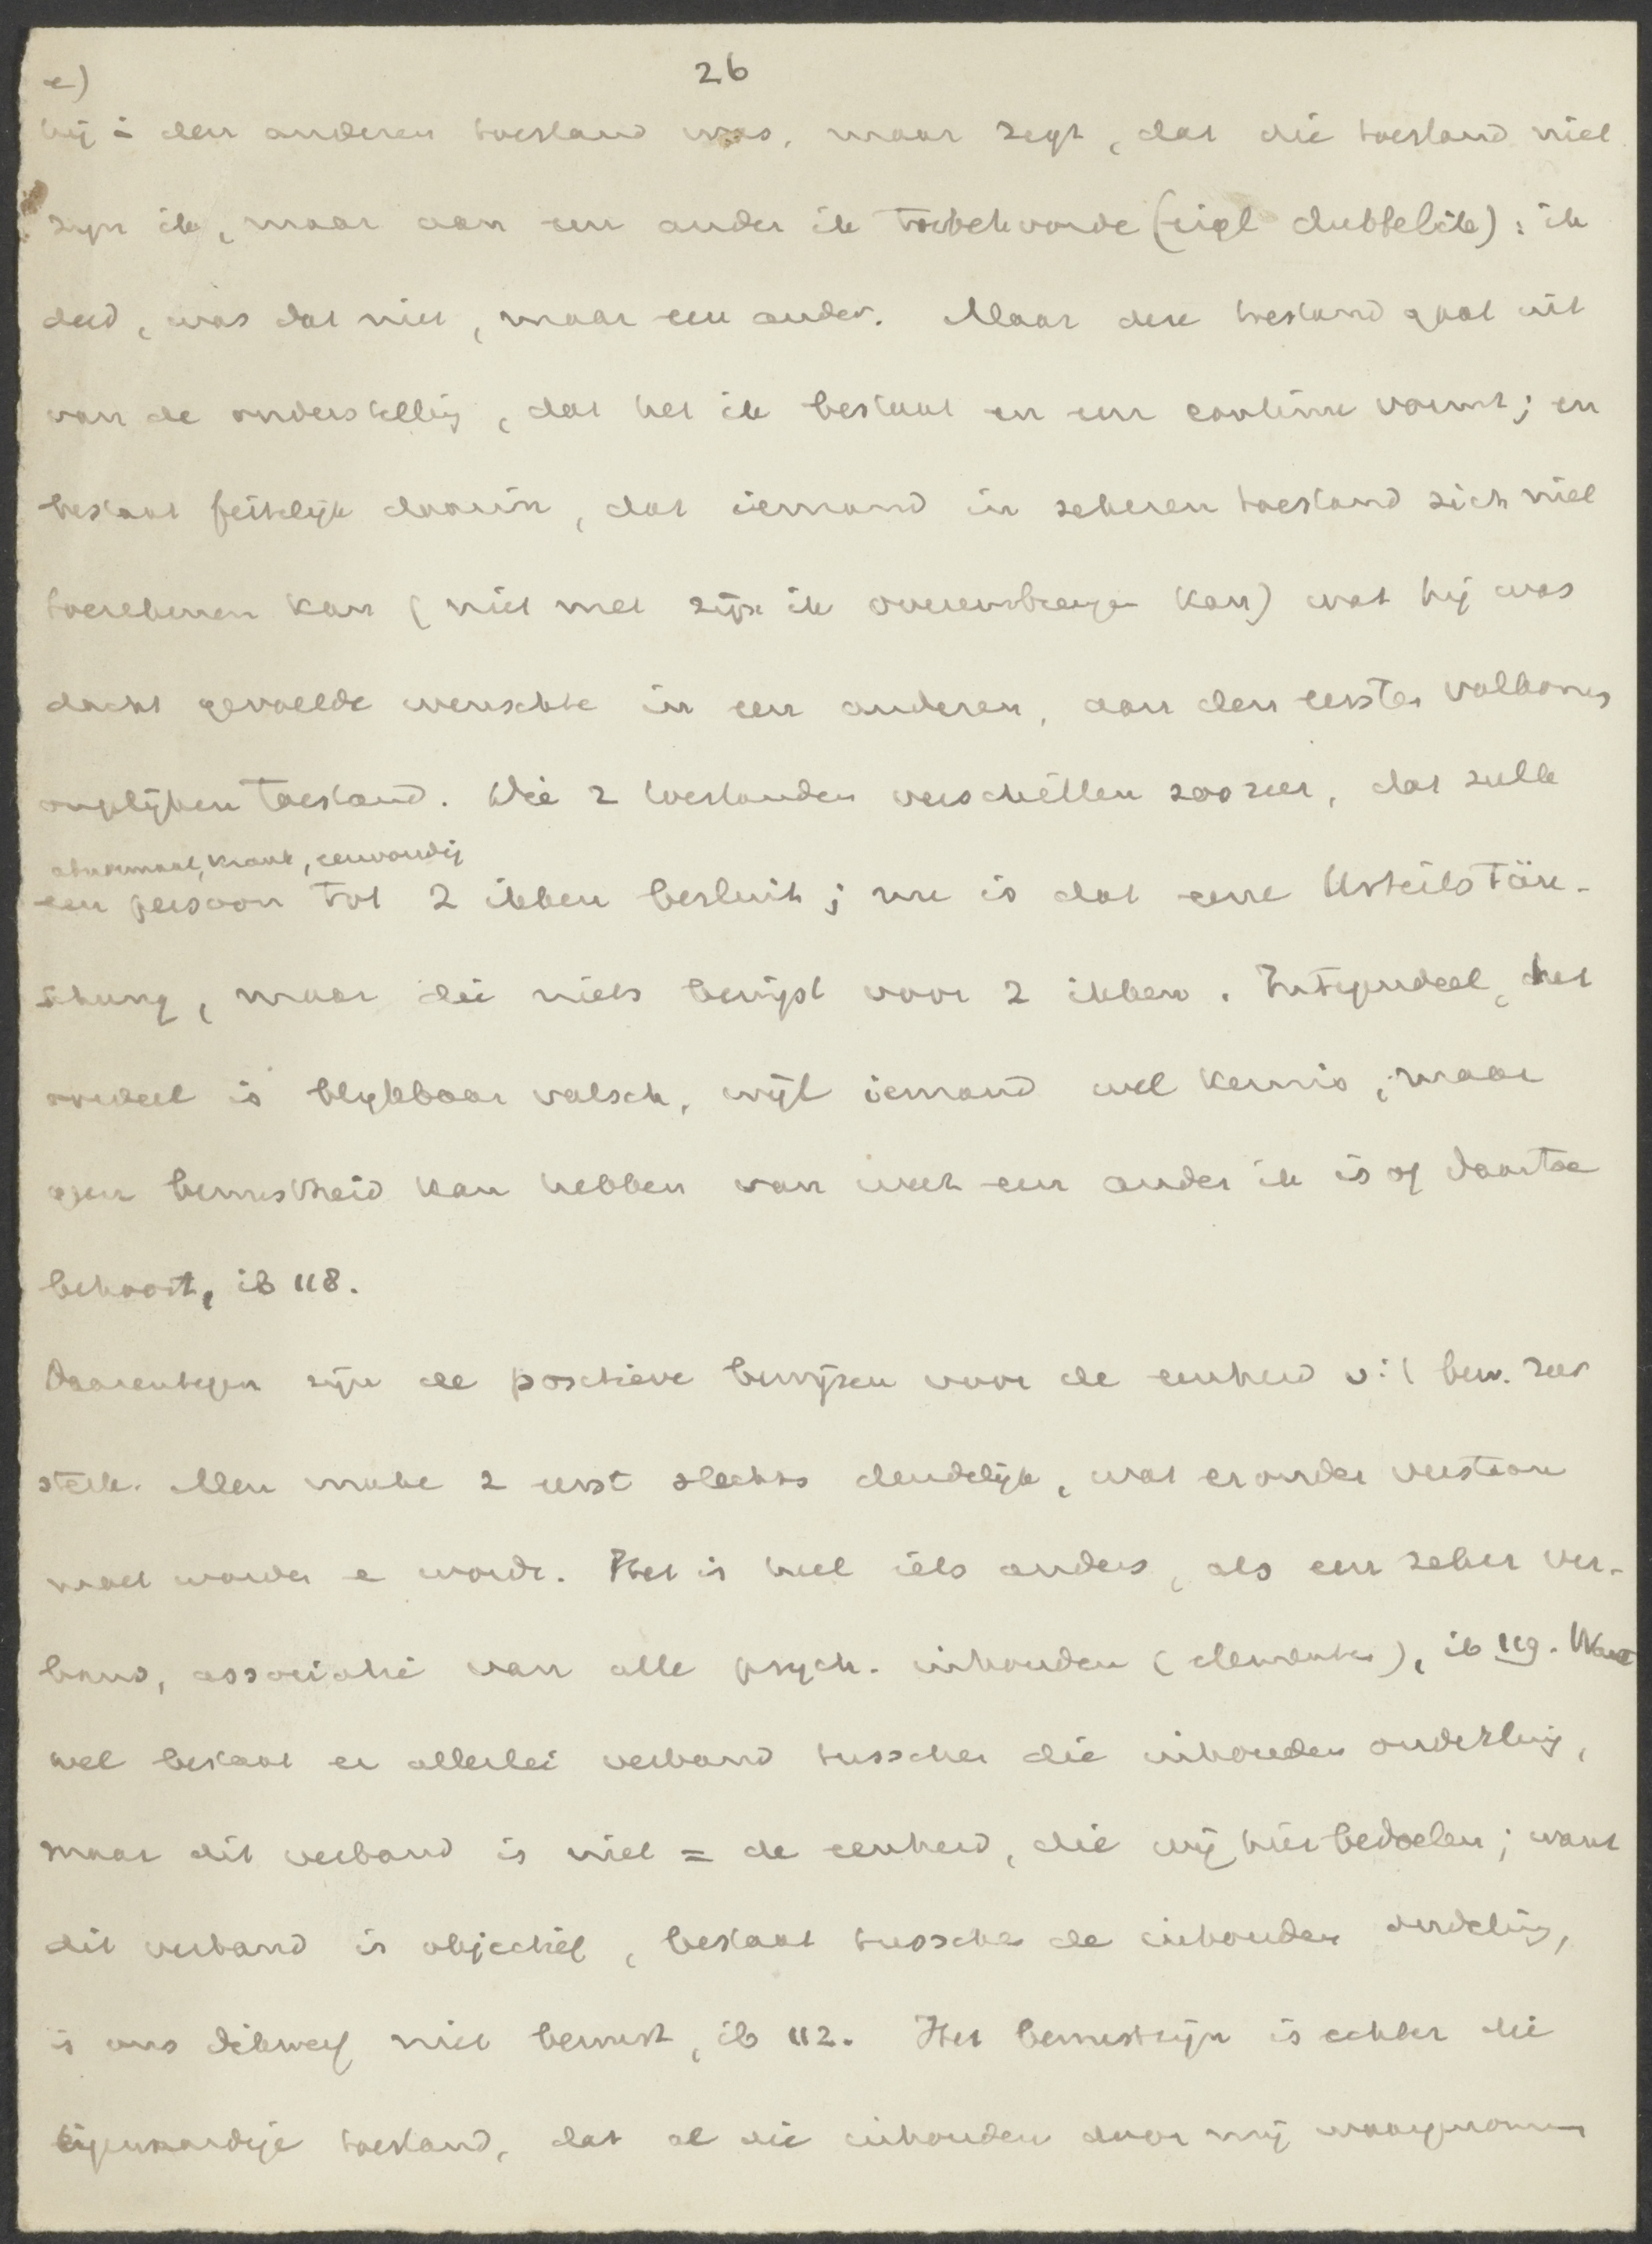 26
e)
hij i den anderen toestand was, maar zegt, dat die toestand niet
zijn ik, maar aan een ander ik toebehoorde (eigl dubbelik): ik
deed, was dat niet, maar een ander. Maar deze toestand gaat uit
van de onderstelling, dat het ik bestaat en een continu vormt; en
bestaat feitelijk daarin, dat iemand in zekeren toestand zich niet
toerekenen kan (niet met zijn ik overeenbrengen kan) wat hij was
dacht gevoelde wenschte in een anderen, aan den eersten volkomen
ongelijken toestand. Die 2 toestanden verschillen zoo zeer, dat zulk
abnormaal, krank, eenvoudig
een persoon tot 2 ikken besluit; nu is dat eene Urteilstäu-
schung, maar die niets bewijst voor 2 ikken. Integendeel, het
oordeel is blijkbaar valsch, wijl iemand wel kennis, maar
geen bewustheid kan hebben van wat een ander ik is of daartoe
behoort, ib 118.
Daarentegen zijn de positieve bewijzen voor de eenheid v: t bew. zeer
sterk. Men make 2 eerst slechts duidelijk, wat eronder verstaan
moet worden e wordt. Het is heel iets anders, als een zeker ver-
band, associatie van alle psych. inhouden (elementen), ib 119. Want
wel bestaat er allerlei verband tusschen die inhouden onderling,
maar dit verband is niet = de eenheid, die wij hier bedoelen; want
dit verband is objectief, bestaat tusschen de inhouden onderling,
is ons dikwerf niet bewust, ib 112. Het bewustzijn is echter die
eigenaardige toestand, dat al die inhouden door mij waargenomen